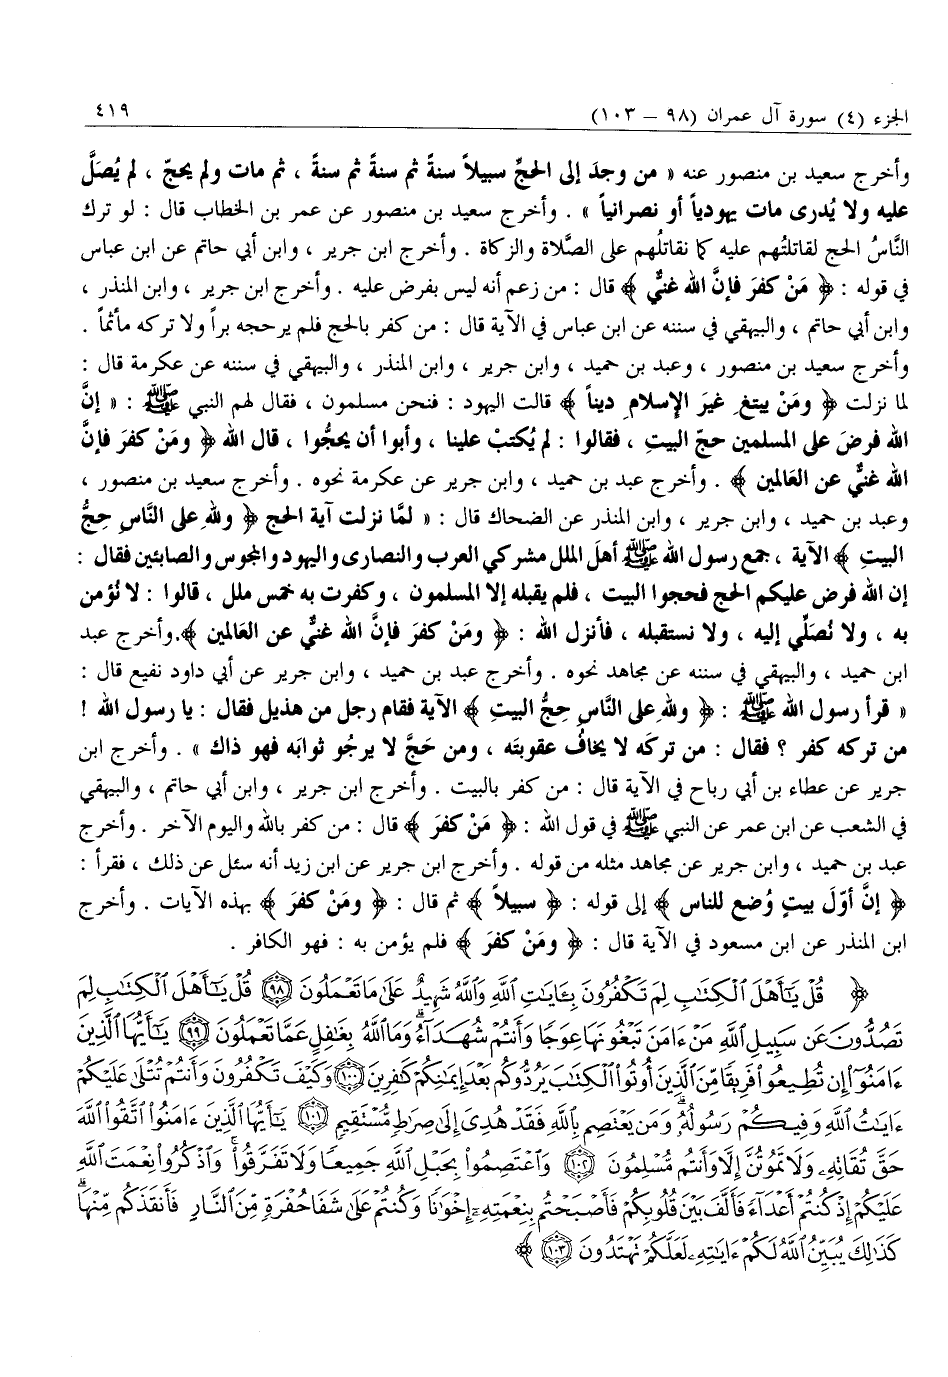 الجزء (٤) سورة آل عمران (٩٨ – ١٠٣) ٤١٩
وأخرج سعيد بن منصور عنه « من وجدَ إلى الحجِّ سبيلاً سنةً ثم سنةً ثم سنة ، ثم مات ولم يحجّ ، لم يُصَلَّ
عليه ولا يُدرى مات يهودياً أو نصرانياً » . وأخرج سعيد بن منصور عن عمر بن الخطاب قال : لو ترك
النَّاسُ الحج لقاتلتُهم عليه كما نقاتلُهم على الصَّلاة والزكاة . وأخرج ابن جرير ، وابن أبي حاتم عن ابن عباس
في قوله : ﴿ مَنْ كفرَ فإنَّ الله غنيٌّ ﴾ قال : من زعم أنه ليس بفرض عليه . وأخرج ابن جرير ، وابن المنذر ،
وابن أبي حاتم ، والبيهقي في سننه عن ابن عباس في الآية قال : من كفر بالحج فلم يرحجه براً ولا تركه مأثماً .
وأخرج سعيد بن منصور ، وعبد بن حميد ، وابن جرير ، وابن المنذر ، والبيهقي في سننه عن عكرمة قال :
لما نزلت ﴿ ومَنْ يبتغِ غيرَ الإسلامِ ديناً ﴾ قالت اليهود : فنحن مسلمون ، فقال لهم النبي ﷺ : « إنَّ
الله فرضَ على المسلمين حجّ البيتِ ، فقالوا : لم يُكتبْ علينا ، وأبوا أن يحجُّوا ، قال الله ﴿ ومَنْ كفرَ فإنَّ
الله غنيٌّ عن العَالمين ﴾ . وأخرج عبد بن حميد ، وابن جرير عن عكرمة نحوه . وأخرج سعيد بن منصور ،
وعبد بن حميد ، وابن جرير ، وابن المنذر عن الضحاك قال : « لمَّا نزلت آية الحج ﴿ وللهِ على النَّاسِ حِجُّ
البيتِ ﴾ الآية ، جمع رسول الله ﷺ أهلَ الملل مشركي العرب والنصارى واليهود والمجوس والصابئين فقال :
إن الله فرض عليكم الحج فحجوا البيت ، فلم يقبله إلا المسلمون ، وكفرت به خمس ملل ، قالوا : لا نُؤمن
به ، ولا نُصَلِّي إليه ، ولا نستقبله ، فأنزل الله : ﴿ ومَنْ كفرَ فإنَّ الله غنيٌّ عن العالمين ﴾. وأخرج عبد
ابن حميد ، والبيهقي في سننه عن مجاهد نحوه . وأخرج عبد بن حميد ، وابن جرير عن أبي داود نفيع قال :
« قرأ رسول الله ﷺ : ﴿ وللهِ على النَّاسِ حِجُّ البيتِ ﴾ الآية فقام رجل من هذيل فقال : يا رسول الله !
من تركه كفر ؟ فقال : من تركَه لا يخافُ عقوبتَه ، ومن حَجَّ لا يرجُو ثوابَه فهو ذاك » . وأخرج ابن
جرير عن عطاء بن أبي رباح في الآية قال : من كفر بالبيت . وأخرج ابن جرير ، وابن أبي حاتم ، والبيهقي
في الشعب عن ابن عمر عن النبي ﷺ في قول الله : ﴿ مَنْ كفرَ ﴾ قال : من كفر بالله واليوم الآخر . وأخرج
عبد بن حميد ، وابن جرير عن مجاهد مثله من قوله . وأخرج ابن جرير عن ابن زيد أنه سئل عن ذلك ، فقرأ :
﴿ إنَّ أوّلَ بيتٍ وُضع للناس ﴾ إلى قوله : ﴿ سبيلاً ﴾ ثم قال : ﴿ ومَنْ كفرَ ﴾ بهذه الآيات . وأخرج
ابن المنذر عن ابن مسعود في الآية قال : ﴿ ومَنْ كفرَ ﴾ فلم يؤمن به : فهو الكافر .
﴿ قُلْ يَٰٓأَهْلَ ٱلْكِتَٰبِ لِمَ تَكْفُرُونَ بِـَٔايَٰتِ ٱللَّهِ وَٱللَّهُ شَهِيدٌ عَلَىٰ مَا تَعْمَلُونَ ٩٨ قُلْ يَٰٓأَهْلَ ٱلْكِتَٰبِ لِمَ
تَصُدُّونَ عَن سَبِيلِ ٱللَّهِ مَنْ ءَامَنَ تَبْغُونَهَا عِوَجًا وَأَنتُمْ شُهَدَآءُ ۗ وَمَا ٱللَّهُ بِغَٰفِلٍ عَمَّا تَعْمَلُونَ ٩٩ يَٰٓأَيُّهَا ٱلَّذِينَ
ءَامَنُوٓا۟ إِن تُطِيعُوا۟ فَرِيقًا مِّنَ ٱلَّذِينَ أُوتُوا۟ ٱلْكِتَٰبَ يَرُدُّوكُم بَعْدَ إِيمَٰنِكُمْ كَٰفِرِينَ ١٠٠ وَكَيْفَ تَكْفُرُونَ وَأَنتُمْ تُتْلَىٰ عَلَيْكُمْ
ءَايَٰتُ ٱللَّهِ وَفِيكُمْ رَسُولُهُۥ ۗ وَمَن يَعْتَصِم بِٱللَّهِ فَقَدْ هُدِىَ إِلَىٰ صِرَٰطٍ مُّسْتَقِيمٍ ١٠١ يَٰٓأَيُّهَا ٱلَّذِينَ ءَامَنُوا۟ ٱتَّقُوا۟ ٱللَّهَ
حَقَّ تُقَاتِهِۦ وَلَا تَمُوتُنَّ إِلَّا وَأَنتُم مُّسْلِمُونَ ١٠٢ وَٱعْتَصِمُوا۟ بِحَبْلِ ٱللَّهِ جَمِيعًا وَلَا تَفَرَّقُوا۟ ۚ وَٱذْكُرُوا۟ نِعْمَتَ ٱللَّهِ
عَلَيْكُمْ إِذْ كُنتُمْ أَعْدَآءً فَأَلَّفَ بَيْنَ قُلُوبِكُمْ فَأَصْبَحْتُم بِنِعْمَتِهِۦٓ إِخْوَٰنًا وَكُنتُمْ عَلَىٰ شَفَا حُفْرَةٍ مِّنَ ٱلنَّارِ فَأَنقَذَكُم مِّنْهَا ۗ
كَذَٰلِكَ يُبَيِّنُ ٱللَّهُ لَكُمْ ءَايَٰتِهِۦ لَعَلَّكُمْ تَهْتَدُونَ ١٠٣ ﴾